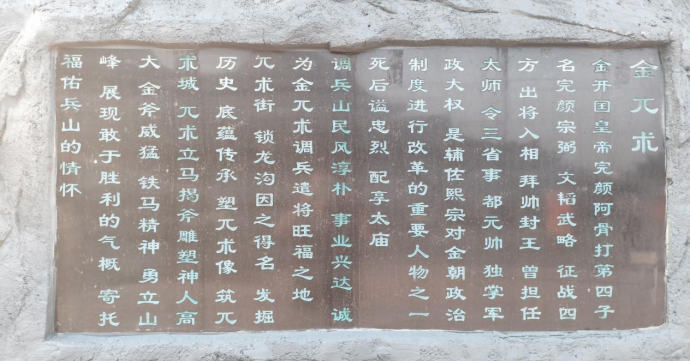 金兀术
金开国皇帝完颜阿骨打第四子
名完颜宗弼 文韬武略 征战四
方 出将入相 拜帅封王 曾担任
太师 令三省事 都元帅 独掌军
政大权 是辅佐熙宗对金朝政治
制度进行改革的重要人物之一
死后谥忠烈 配享太庙
调兵山民风淳朴 事业兴达 诚
为金兀术调兵遣将旺福之地
兀术街 锁龙沟因之得名 发掘
历史 底蕴传承 塑兀术像 筑兀
术城 兀术立马揭斧雕塑神人高
大 金斧威猛 铁马精神 勇立山
峰 展现敢于胜利的气概 寄托
福佑兵山的情怀